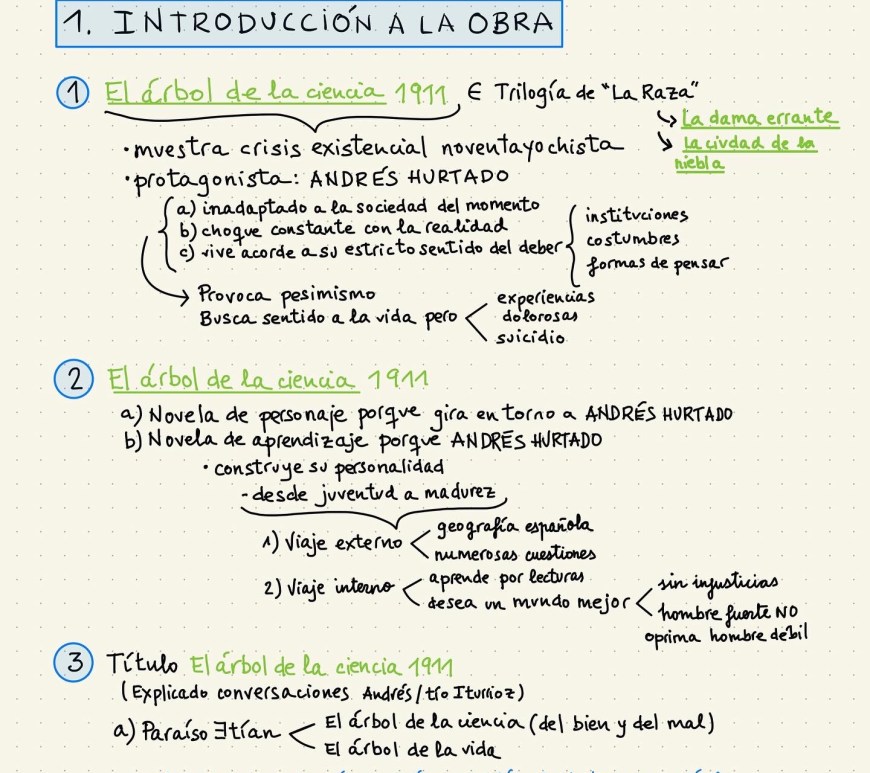 1. INTRODUCCIÓN A LA OBRA
① El árbol de la ciencia 1911, ∈ Trilogía de "La Raza"
↳ La dama errante
↘ La ciudad de la
niebla
• muestra crisis existencial noventayochista
• protagonista: ANDRÉS HURTADO
a) inadaptado a la sociedad del momento
b) choque constante con la realidad
c) vive acorde a su estricto sentido del deber
instituciones
costumbres
formas de pensar
→ Provoca pesimismo
Busca sentido a la vida pero
experiencias
dolorosas
suicidio
② El árbol de la ciencia 1911
a) Novela de personaje porque gira en torno a ANDRÉS HURTADO
b) Novela de aprendizaje porque ANDRÉS HURTADO
• construye su personalidad
- desde juventud a madurez
1) Viaje externo
geografía española
numerosas cuestiones
2) Viaje interno
aprende por lecturas
desea un mundo mejor
sin injusticias
hombre fuerte NO
oprima hombre débil
③ Título El árbol de la ciencia 1911
(Explicado conversaciones Andrés/tío Iturrioz)
a) Paraíso ∃tían
El árbol de la ciencia (del bien y del mal)
El árbol de la vida